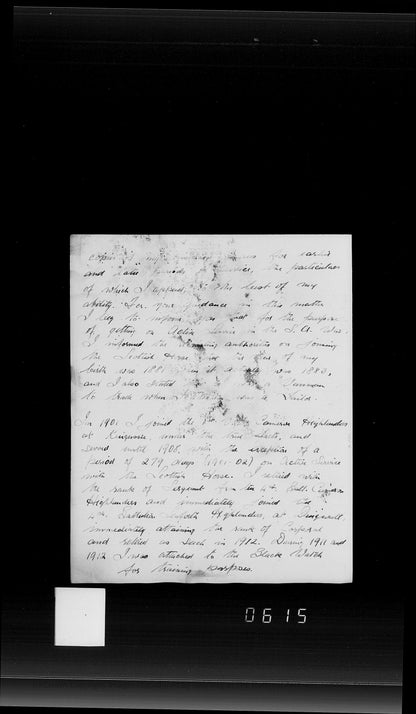 copies of my
and later periods of service, the particulars
of which I append, to the best of my
ability. For your guidance in this matter
I beg to inform you that for the purpose
of getting on Active Service in the S.A. War
I informed the authorities on joining
the Scottish Horse that the of my
birth was 1881 when it was 1883,
and I also stated
to trade when
In 1901 I joined the Cameron Highlanders
at Kingussie under the true facts, and
served until 1908, with the exception of a
period of 279 days (1901-02) on Active Service
with the Scottish Horse. I retired with
the rank of Sergeant from the 4th Batt. Cameron
Highlanders and immediately joined the
4th Battalion Seaforth Highlanders at Dingwall,
immediately attaining the rank of Corporal
and retired as such in 1912. During 1911 and
1912 I was attached to the Black Watch
for training purposes.
0615